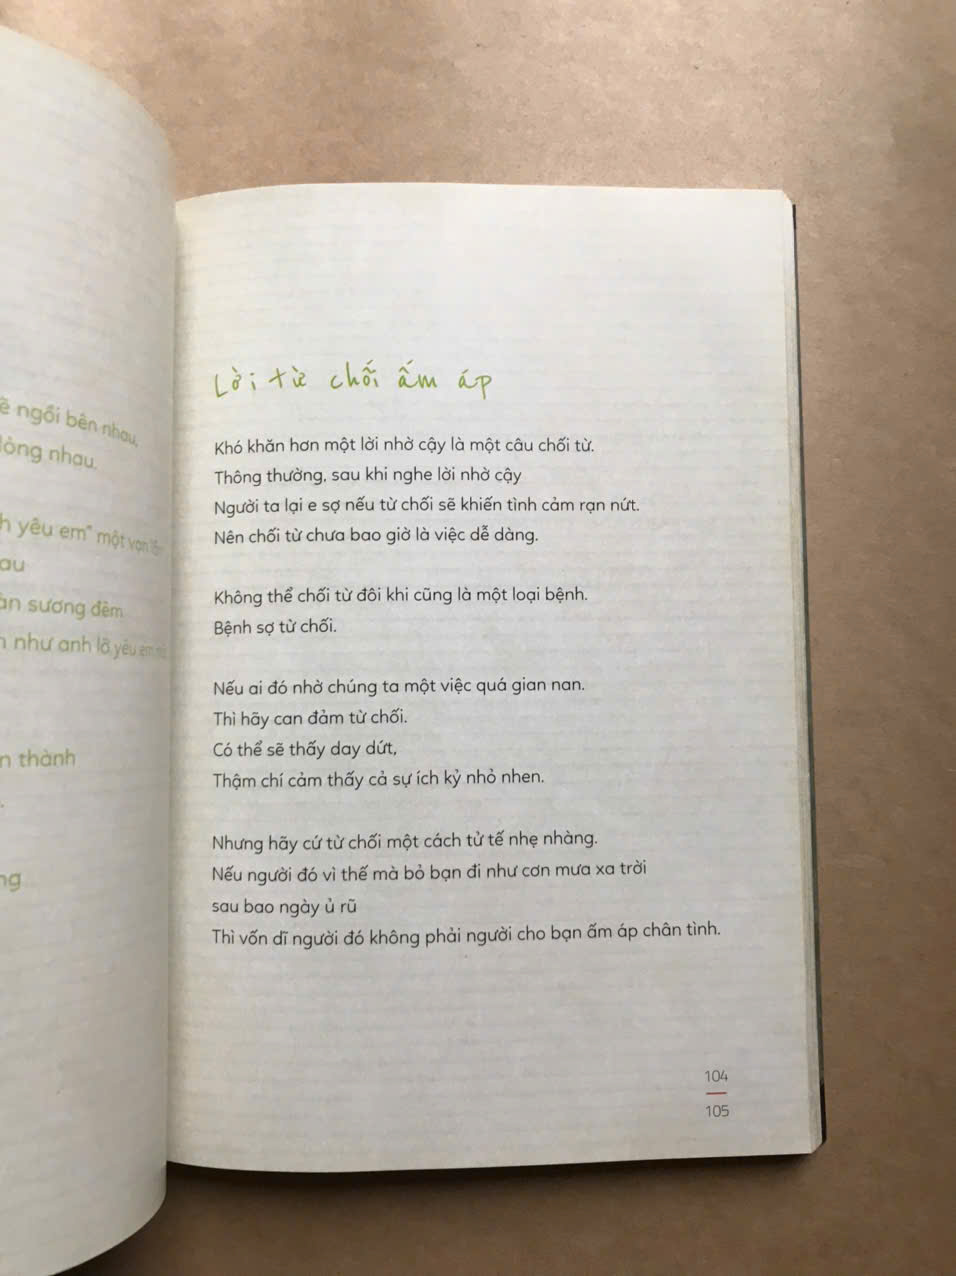 ngồi bên nhau,
lòng nhau.
yêu em" một vạn
sương đêm
như anh lỡ yêu em
thành
Lời từ chối ấm áp
Khó khăn hơn một lời nhờ cậy là một câu chối từ.
Thông thường, sau khi nghe lời nhờ cậy
Người ta lại e sợ nếu từ chối sẽ khiến tình cảm rạn nứt.
Nên chối từ chưa bao giờ là việc dễ dàng.
Không thể chối từ đôi khi cũng là một loại bệnh.
Bệnh sợ từ chối.
Nếu ai đó nhờ chúng ta một việc quá gian nan.
Thì hãy can đảm từ chối.
Có thể sẽ thấy day dứt,
Thậm chí cảm thấy cả sự ích kỷ nhỏ nhen.
Nhưng hãy cứ từ chối một cách tử tế nhẹ nhàng.
Nếu người đó vì thế mà bỏ bạn đi như cơn mưa xa trời
sau bao ngày ủ rũ
Thì vốn dĩ người đó không phải người cho bạn ấm áp chân tình.
104
105